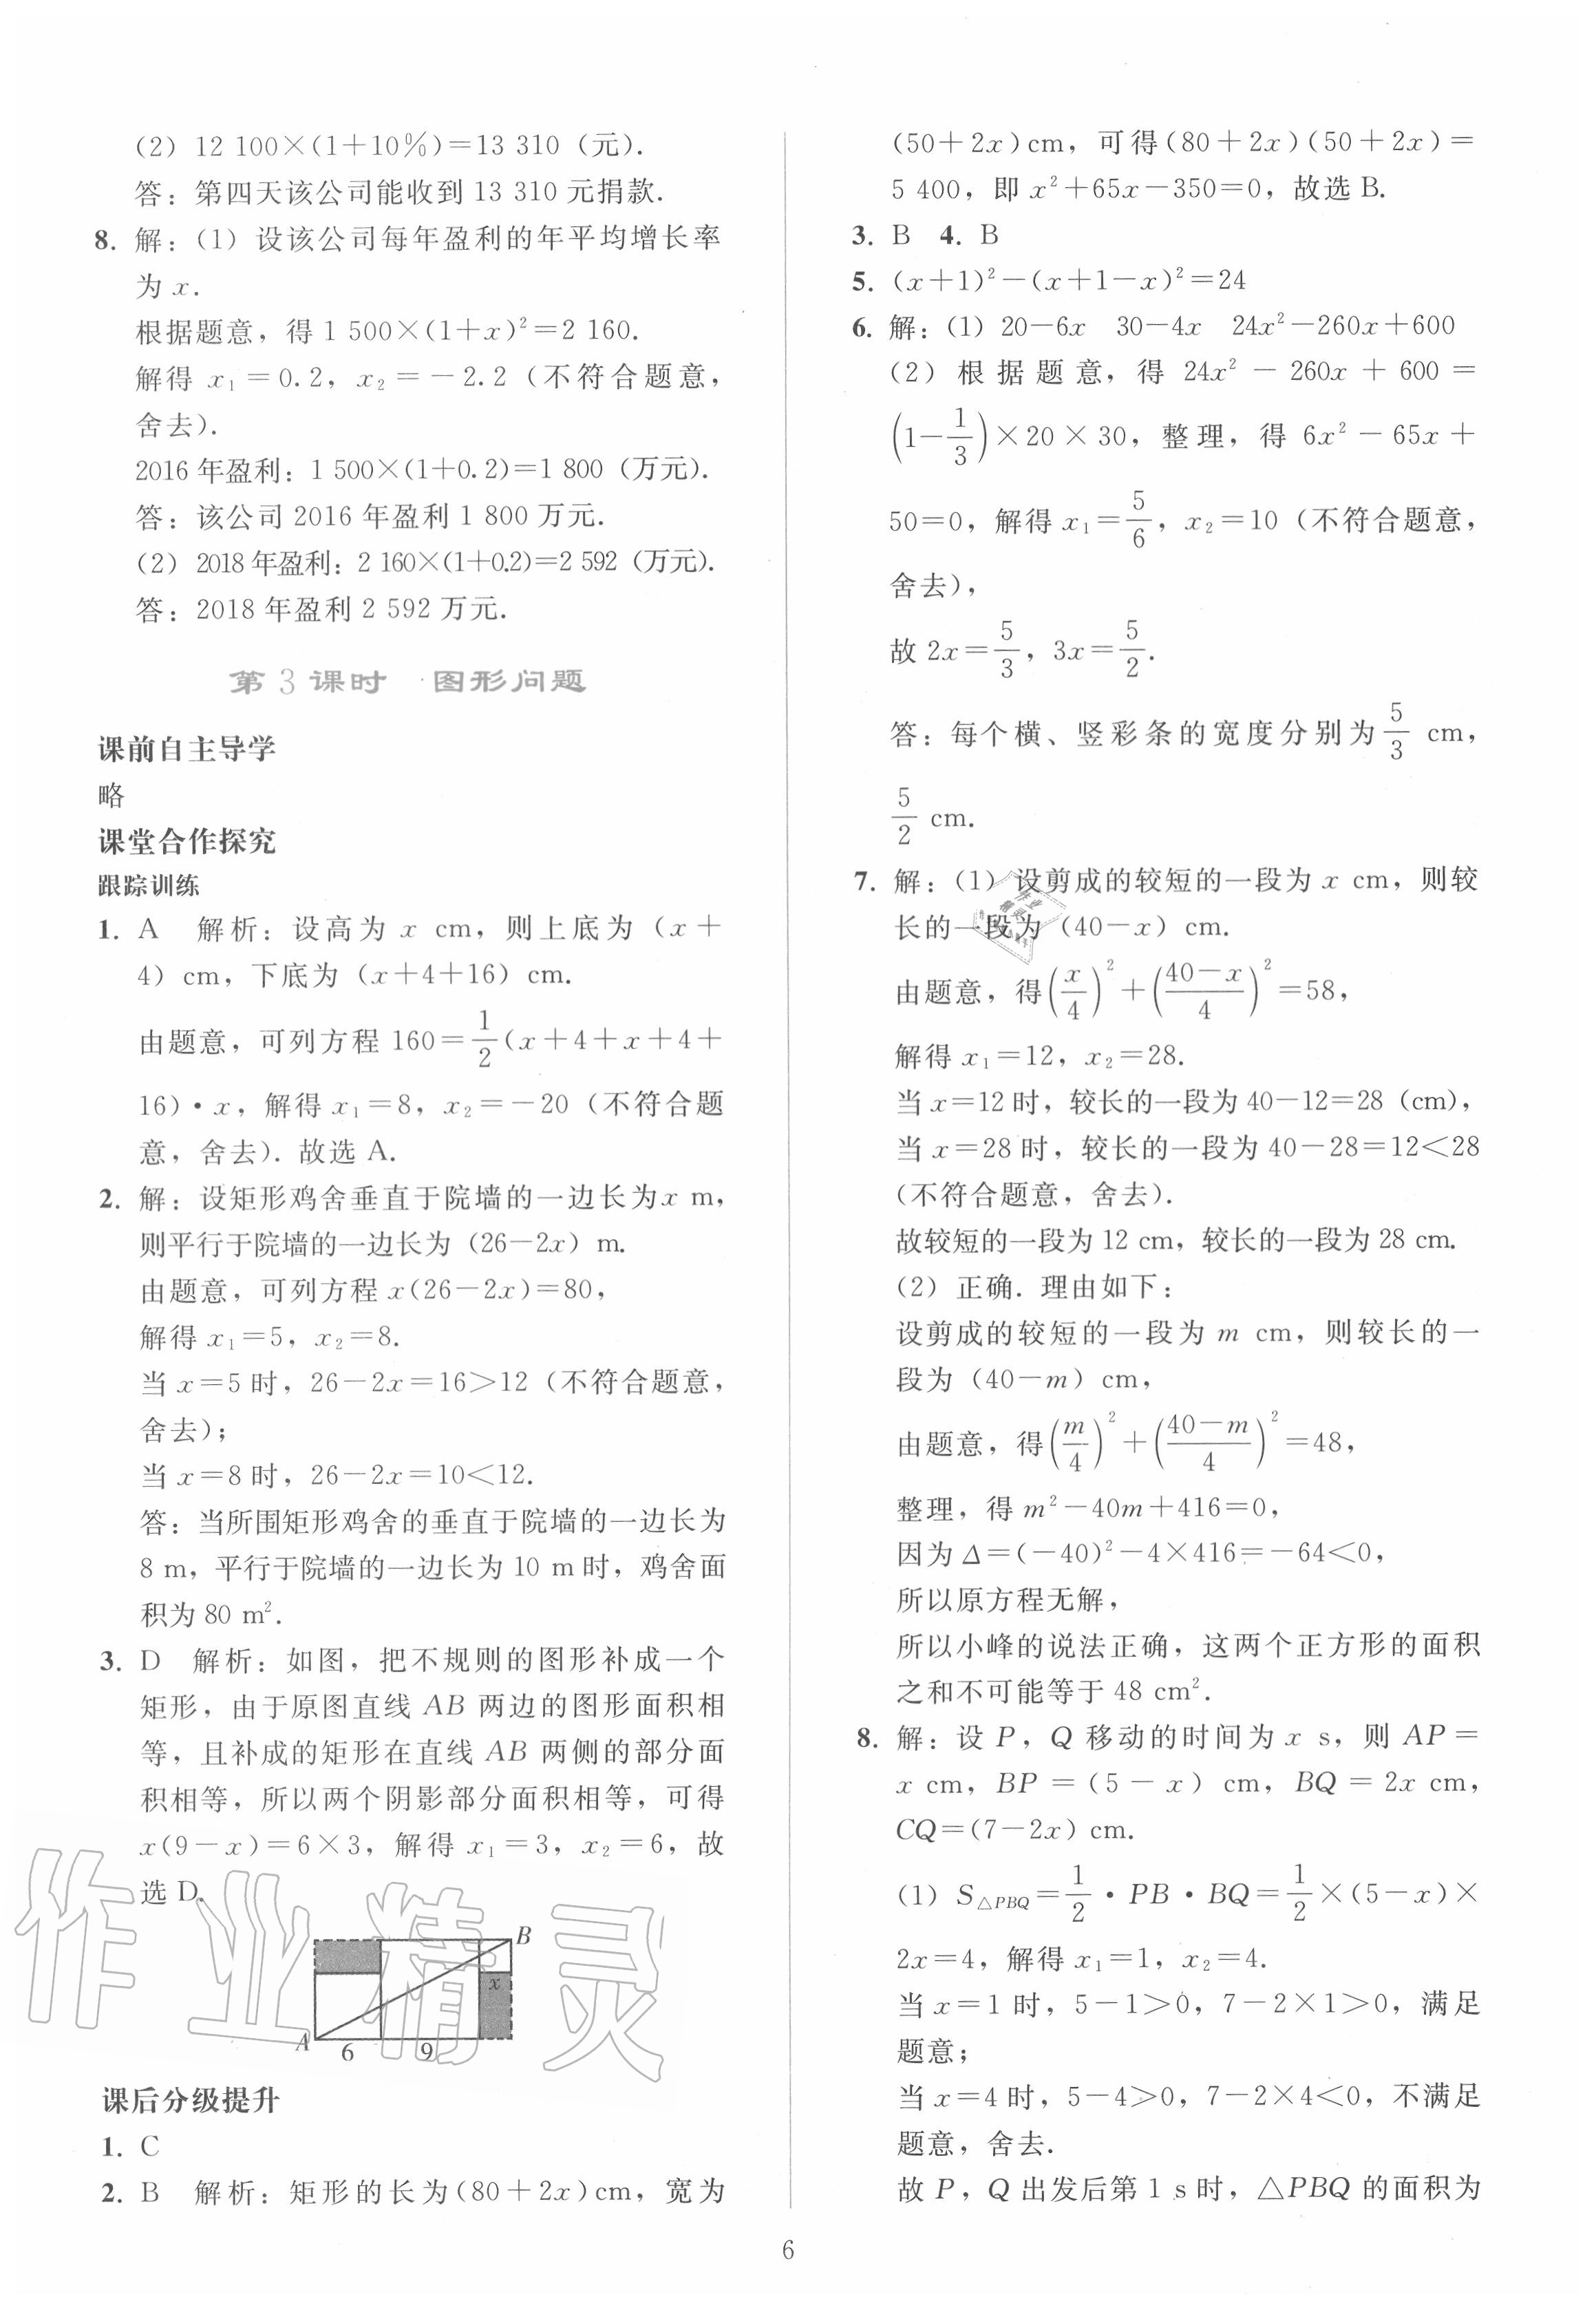 (2) 12 100×(1+10%)=13 310 (元).
答：第四天该公司能收到 13 310 元捐款.
8. 解：(1) 设该公司每年盈利的年平均增长率
为 x.
根据题意，得 1 500×(1+x)²=2 160.
解得 x₁=0.2，x₂=-2.2 (不符合题意，
舍去).
2016 年盈利：1 500×(1+0.2)=1 800 (万元).
答：该公司 2016 年盈利 1 800 万元.
(2) 2018 年盈利：2 160×(1+0.2)=2 592 (万元).
答：2018 年盈利 2 592 万元.
第 3 课时 图形问题
课前自主导学
略
课堂合作探究
跟踪训练
1. A 解析：设高为 x cm，则上底为 (x+
4) cm，下底为 (x+4+16) cm.
由题意，可列方程 160=1/2(x+4+x+4+
16)·x，解得 x₁=8，x₂=-20 (不符合题
意，舍去). 故选 A.
2. 解：设矩形鸡舍垂直于院墙的一边长为 x m，
则平行于院墙的一边长为 (26-2x) m.
由题意，可列方程 x(26-2x)=80，
解得 x₁=5，x₂=8.
当 x=5 时，26-2x=16>12 (不符合题意，
舍去)；
当 x=8 时，26-2x=10<12.
答：当所围矩形鸡舍的垂直于院墙的一边长为
8 m，平行于院墙的一边长为 10 m 时，鸡舍面
积为 80 m².
3. D 解析：如图，把不规则的图形补成一个
矩形，由于原图直线 AB 两边的图形面积相
等，且补成的矩形在直线 AB 两侧的部分面
积相等，所以两个阴影部分面积相等，可得
x(9-x)=6×3，解得 x₁=3，x₂=6，故
选 D.
B
x
A
6 9
作业精灵
课后分级提升
1. C
2. B 解析：矩形的长为(80+2x)cm，宽为
(50+2x)cm，可得(80+2x)(50+2x)=
5 400，即 x²+65x-350=0，故选 B.
3. B 4. B
5. (x+1)²-(x+1-x)²=24
6. 解：(1) 20-6x 30-4x 24x²-260x+600
(2) 根据题意，得 24x²-260x+600=
(1-1/3)×20×30，整理，得 6x²-65x+
50=0，解得 x₁=5/6，x₂=10 (不符合题意，
舍去)，
故 2x=5/3，3x=5/2.
答：每个横、竖彩条的宽度分别为 5/3 cm，
5/2 cm.
7. 解：(1) 设剪成的较短的一段为 x cm，则较
长的一段为 (40-x) cm.
由题意，得(x/4)²+((40-x)/4)²=58，
解得 x₁=12，x₂=28.
当 x=12 时，较长的一段为 40-12=28 (cm)，
当 x=28 时，较长的一段为 40-28=12<28
(不符合题意，舍去).
故较短的一段为 12 cm，较长的一段为 28 cm.
(2) 正确. 理由如下：
设剪成的较短的一段为 m cm，则较长的一
段为 (40-m) cm，
由题意，得(m/4)²+((40-m)/4)²=48，
整理，得 m²-40m+416=0，
因为 Δ=(-40)²-4×416=-64<0，
所以原方程无解，
所以小峰的说法正确，这两个正方形的面积
之和不可能等于 48 cm².
8. 解：设 P，Q 移动的时间为 x s，则 AP=
x cm，BP=(5-x) cm，BQ=2x cm，
CQ=(7-2x) cm.
(1) S△PBQ=1/2·PB·BQ=1/2×(5-x)×
2x=4，解得 x₁=1，x₂=4.
当 x=1 时，5-1>0，7-2×1>0，满足
题意；
当 x=4 时，5-4>0，7-2×4<0，不满足
题意，舍去.
故 P，Q 出发后第 1 s 时，△PBQ 的面积为
6